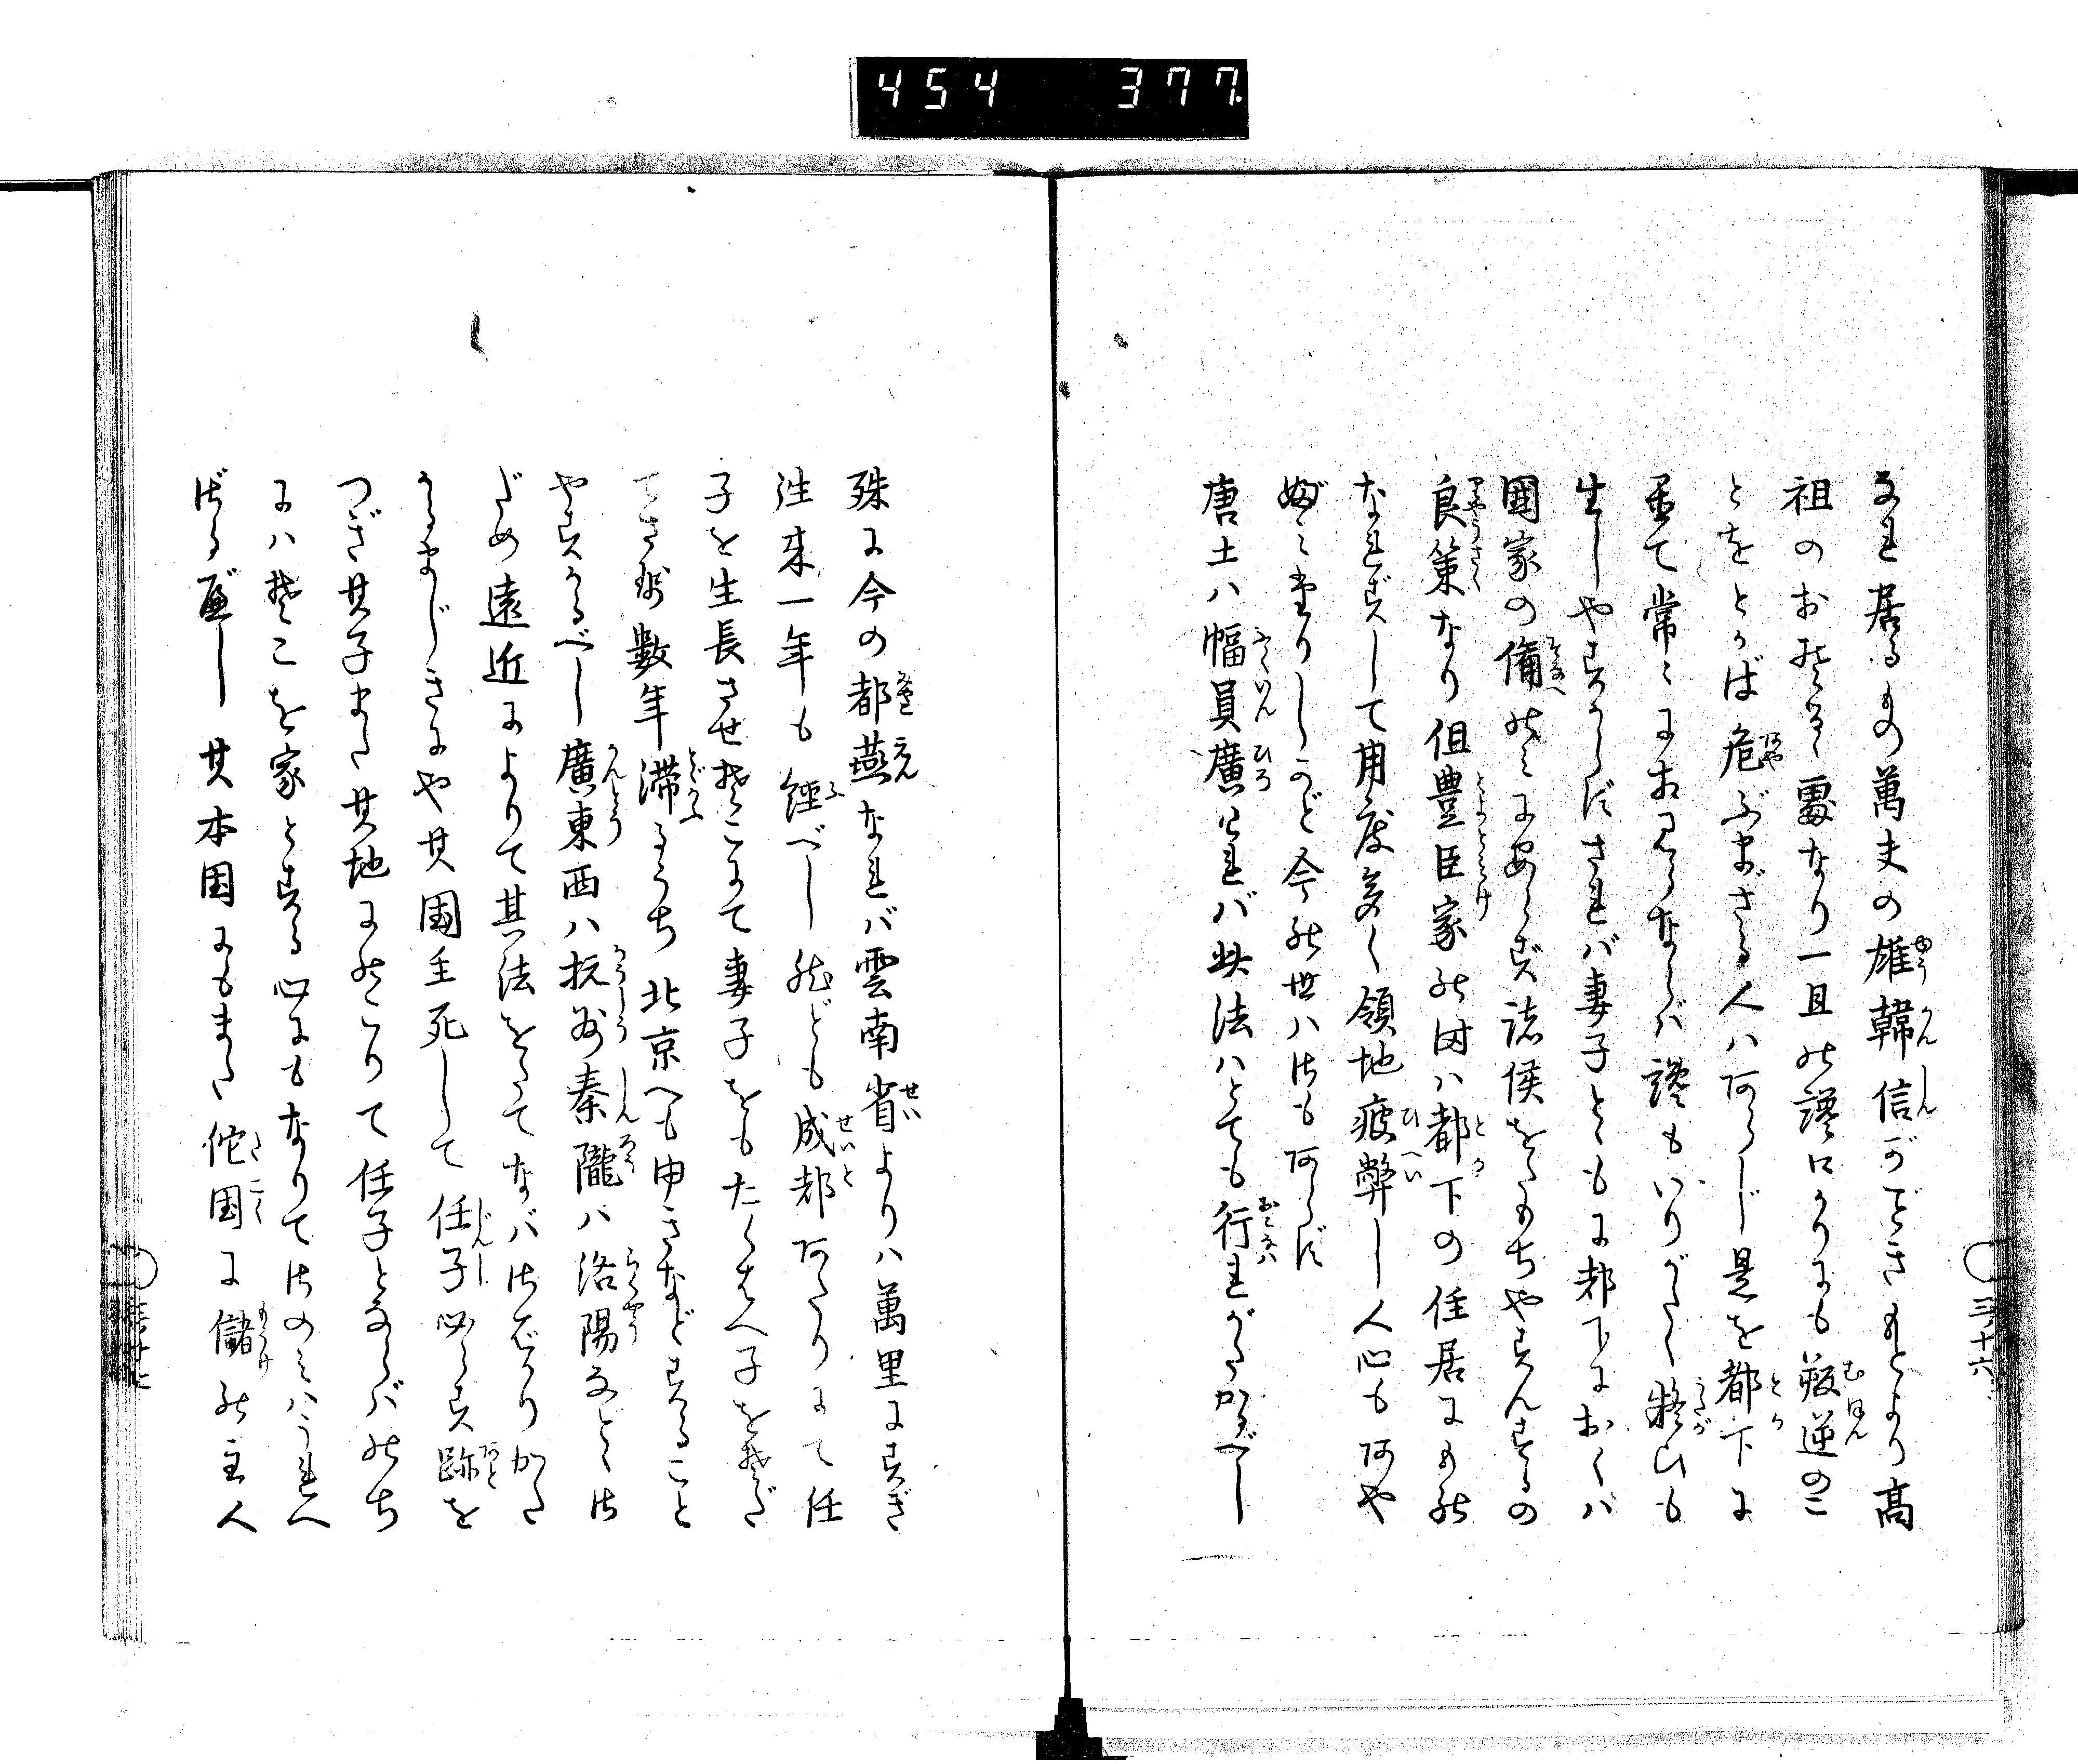 454 377
なれ居るもの萬夫の雄韓信がごときもとより高
祖のおそるゝ處なり一旦の讒口よりにも叛逆のこ
とをとかば危ぶまざる人ハあらじ是を都下に
置て常々にお見るならバ讒もいりがたく疑ひも
生しやすからじされバ妻子ともに都下におくバ
國家の備のみにあらず諸侯をたもちやすんずるの
良策なり但豊臣家の時ハ都下の住居にもの
なれずして用度多く領地疲弊し人心もあや
ぶミありしかど今の世ハさもあらじ
唐土ハ幅員廣けれバ此法ハとても行れがたかるべし
三ノ十六
殊に今の都燕なれバ雲南省よりハ萬里にすぎ
往来一年も經べし然ども成都あたりにて任
子を生長させそこにて妻子をもたくはへ子をそだ
てさせ數年滞るうち北京へも申さなどすること
やすかるべし廣東西ハ抗州秦隴ハ洛陽などゝさ
だめ遠近によりて其法をたてなバさばかりかた
かるまじきにや其國主死して任子必らず跡を
つぎ其子また其地にのこりて任子とならバのち
にハそこを家とする心にもなりてさのミハうれへ
ざるべし其本国にもまた佗国に儲の主人